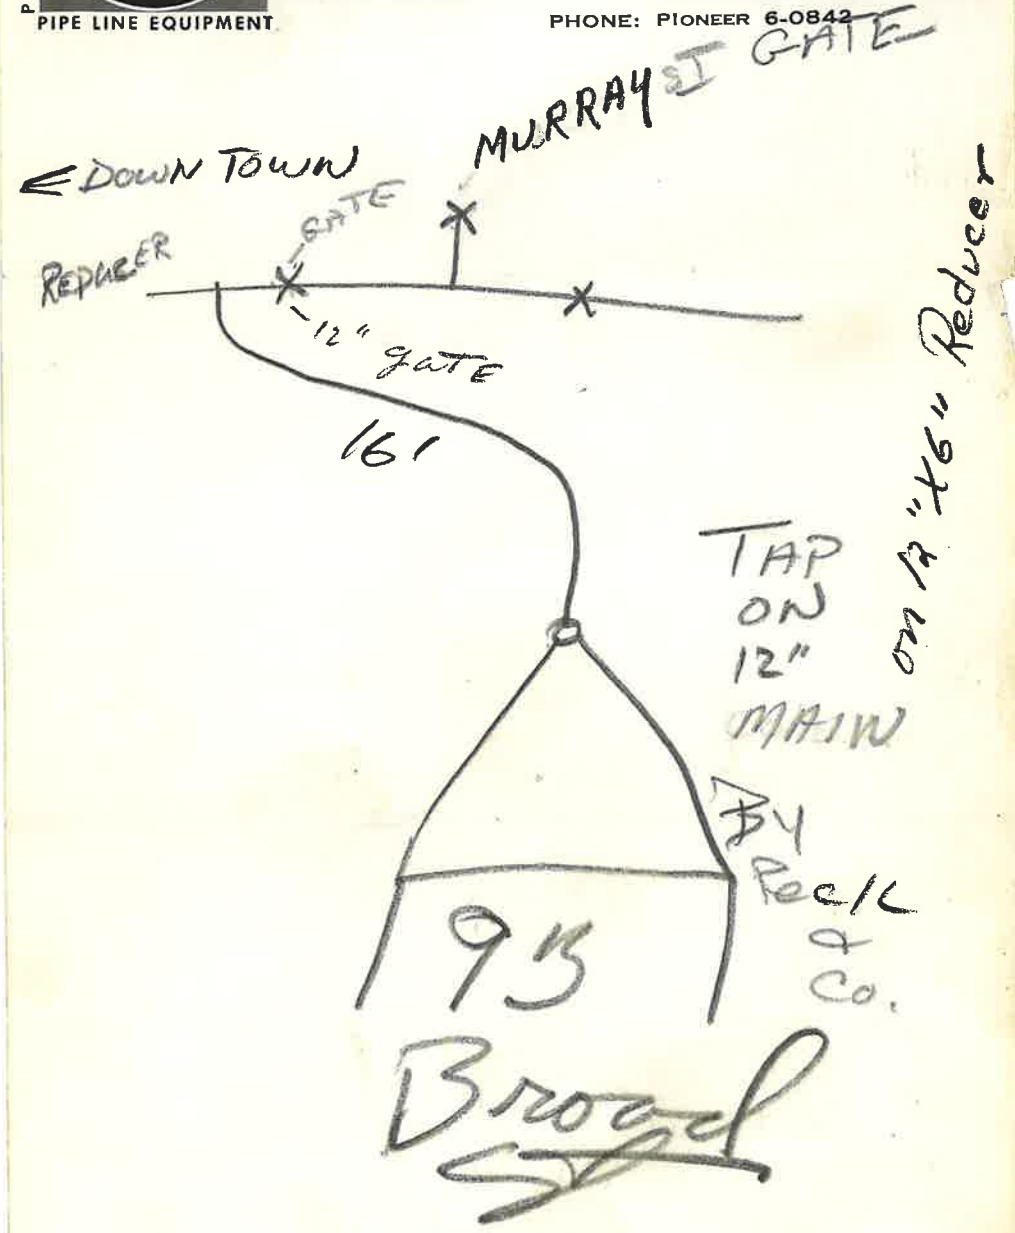 PIPE LINE EQUIPMENT
PHONE: PIONEER 6-0842
MURRAY ST GATE
< DOWN TOWN
GATE
REDUCER
12" gATE
161
on 12"x6" Reducer
TAP
ON
12"
MAIN
BY
&
Co.
93
Broad
St